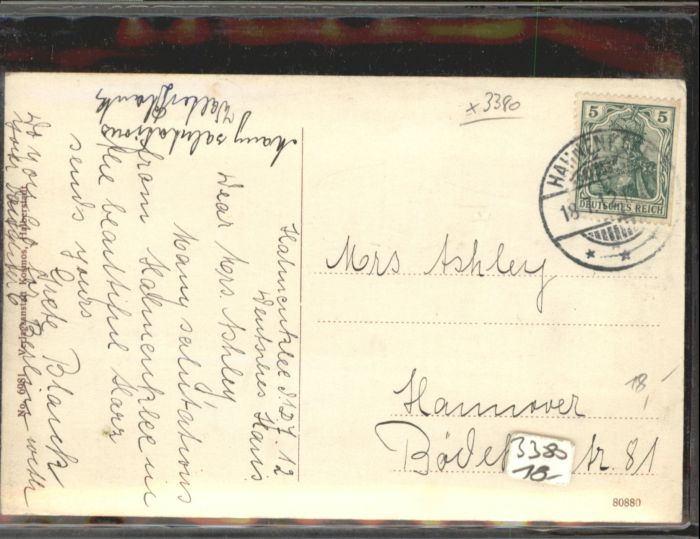 x 3380
5 5
DEUTSCHES REICH
HAHNEN
18
Mrs Ashley
Hannover
Böde str. 81
18
3380
18.-
80880
Hahnenklee d. 17. 12
Deutsches Haus
Dear Mrs. Ashley
Many salutations
from Hahnenklee in
the beautiful Harz
sends yours
Grete Blanck
Many salutations
Walter Blanck